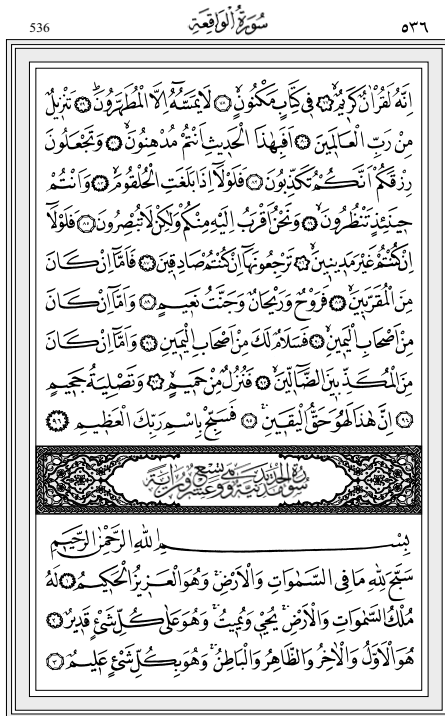 536 سُورَةُ الْوَاقِعَةِ ٥٣٦
اِنَّهُ لَقُرْاٰنٌ كَرٖيمٌۙ ﴿٧٧﴾ فٖي كِتَابٍ مَكْنُونٍۙ ﴿٧٨﴾ لَا يَمَسُّهُٓ اِلَّا الْمُطَهَّرُونَۜ ﴿٧٩﴾ تَنْزٖيلٌ
مِنْ رَبِّ الْعَالَمٖينَ ﴿٨٠﴾ اَفَبِهٰذَا الْحَدٖيثِ اَنْتُمْ مُدْهِنُونَۙ ﴿٨١﴾ وَتَجْعَلُونَ
رِزْقَكُمْ اَنَّكُمْ تُكَذِّبُونَ ﴿٨٢﴾ فَلَوْلَٓا اِذَا بَلَغَتِ الْحُلْقُومَۙ ﴿٨٣﴾ وَاَنْتُمْ
حٖينَئِذٍ تَنْظُرُونَۙ ﴿٨٤﴾ وَنَحْنُ اَقْرَبُ اِلَيْهِ مِنْكُمْ وَلٰكِنْ لَا تُبْصِرُونَ ﴿٨٥﴾ فَلَوْلَٓا
اِنْ كُنْتُمْ غَيْرَ مَدٖينٖينَۙ ﴿٨٦﴾ تَرْجِعُونَهَٓا اِنْ كُنْتُمْ صَادِقٖينَ ﴿٨٧﴾ فَاَمَّٓا اِنْ كَانَ
مِنَ الْمُقَرَّبٖينَۙ ﴿٨٨﴾ فَرَوْحٌ وَرَيْحَانٌ وَجَنَّتُ نَعٖيمٍ ﴿٨٩﴾ وَاَمَّٓا اِنْ كَانَ
مِنْ اَصْحَابِ الْيَمٖينِۙ ﴿٩٠﴾ فَسَلَامٌ لَكَ مِنْ اَصْحَابِ الْيَمٖينِ ﴿٩١﴾ وَاَمَّٓا اِنْ كَانَ
مِنَ الْمُكَذِّبٖينَ الضَّٓالّٖينَۙ ﴿٩٢﴾ فَنُزُلٌ مِنْ حَمٖيمٍۙ ﴿٩٣﴾ وَتَصْلِيَةُ جَحٖيمٍ
﴿٩٤﴾ اِنَّ هٰذَا لَهُوَ حَقُّ الْيَقٖينِۚ ﴿٩٥﴾ فَسَبِّحْ بِاسْمِ رَبِّكَ الْعَظٖيمِ ﴿٩٦﴾
سُورَةُ الْحَدٖيدِ مَدَنِيَّةٌ وَهِيَ تِسْعٌ وَعِشْرُونَ اٰيَةً
بِسْمِ اللّٰهِ الرَّحْمٰنِ الرَّحٖيمِ
سَبَّحَ لِلّٰهِ مَا فِي السَّمٰوَاتِ وَالْاَرْضِۚ وَهُوَ الْعَزٖيزُ الْحَكٖيمُ ﴿١﴾ لَهُ
مُلْكُ السَّمٰوَاتِ وَالْاَرْضِۚ يُحْيٖ وَيُمٖيتُۚ وَهُوَ عَلٰى كُلِّ شَيْءٍ قَدٖيرٌ ﴿٢﴾
هُوَ الْاَوَّلُ وَالْاٰخِرُ وَالظَّاهِرُ وَالْبَاطِنُۚ وَهُوَ بِكُلِّ شَيْءٍ عَلٖيمٌ ﴿٣﴾